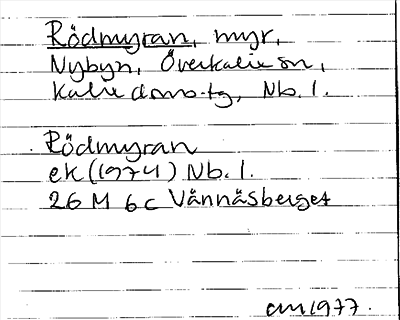 Rödmyran, myr,
Nybyn, Överkalix sn,
Kalix doms.tg, Nb. l.
Rödmyran
ek (1974) Nb. l.
26 M 6c Vännäsberget
1977.